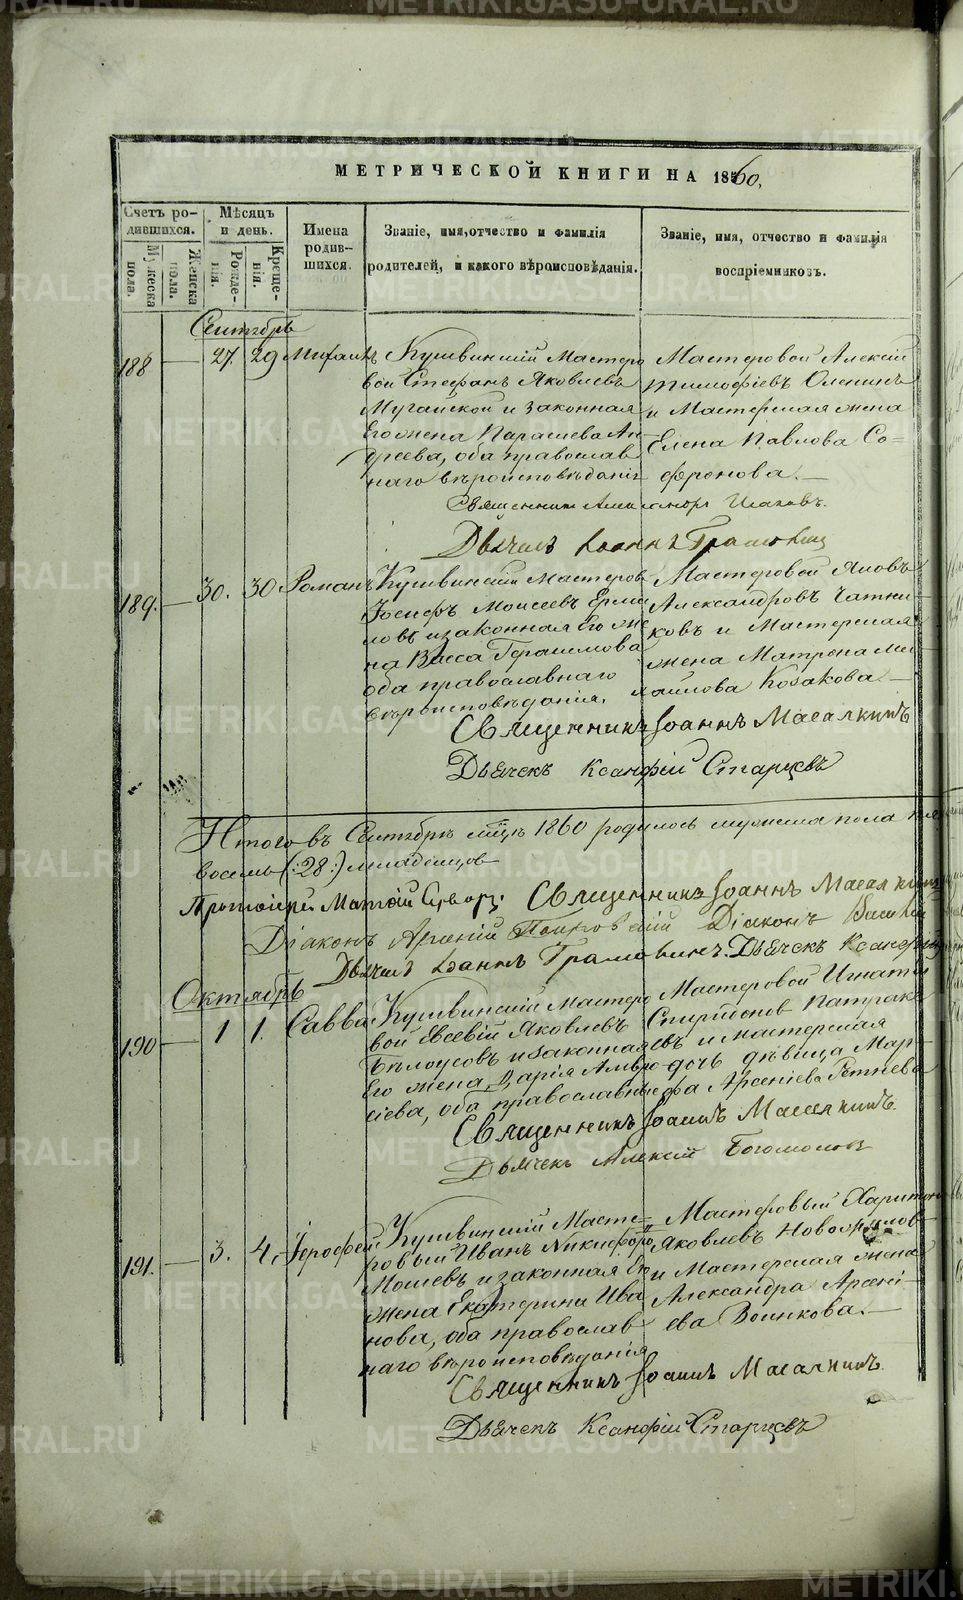 МЕТРИЧЕСКОЙ КНИГИ НА 1860,
Счетъ родившихся.
Мужеска пола.
Женска пола.
Мѣсяцъ и день.
Рожденія.
Крещенія.
Имена родившихся.
Званіе, имя, отчество и фамилія родителей, и какого вѣроисповѣданія.
Званіе, имя, отчество и фамилія воспріемниковъ.
Сентябрь
188 — 27. 29 Михаилъ
Кушвинскій Мастеро
вой Стефанъ Яковлевъ
Мугайской и законная
Его жена Параскева Ан
дреева, оба православ
наго вѣроисповѣданія
Мастеровой Алексій
Тимофіевъ Оленинъ
и Мастерская жена
Елена Павлова Со=
фронова. —
Священникъ Александръ
Дьячекъ Іоаннъ
189. — 30. 30 Романъ
Кушвинскій Мастеров
Іосифъ Моисеевъ Ерми
ловъ и законная Его же
на Васса Герасимова
оба православнаго
вѣроисповѣданія,
Мастеровой Яковъ
Александровъ
ковъ и Мастерская
жена Матрена Ми
хаилова Козакова —
Священникъ Іоаннъ Масалкинъ
Дьячекъ Ксанфій Старцевъ
Итого въ Сентябрѣ мцѣ 1860 родилось мужеска пола
восемь (:28:) младенцовъ
Протоіерей Матфій Священникъ Іоаннъ Масалкинъ
Діаконъ Арсеній Діаконъ Василій
Дьячекъ Іоаннъ Дьячекъ Ксанфій
Октябрь
190 — 1 1. Савва
Кушвинскій Мастеро
вой Евсевій Яковлевъ
Бѣлоусовъ и законная
Его жена Дарія Амвро
сіева, оба православны
Мастеровой Игнатій
Спиридонов
евъ и мастерская
дочь дѣвица Мар
фа Арсеніева
Священникъ Іоаннъ Масалкинъ.
Дьячекъ Алексій Богомолов
191. — 3. 4. Іерофей
Кушвинскій Масте=
ровый Иванъ Никифоро
Мошевъ и законная Ег
жена Екатерина Ива
нова, оба православ
наго вѣроисповѣданія
Мастеровый Харитонъ
Яковлевъ
и Мастерская жена
Александра Арсені=
ева Воинкова. —
Священникъ Іоаннъ Масалкинъ.
Дьячекъ Ксанфій Старцевъ
METRIKI.GASO-URAL.RU